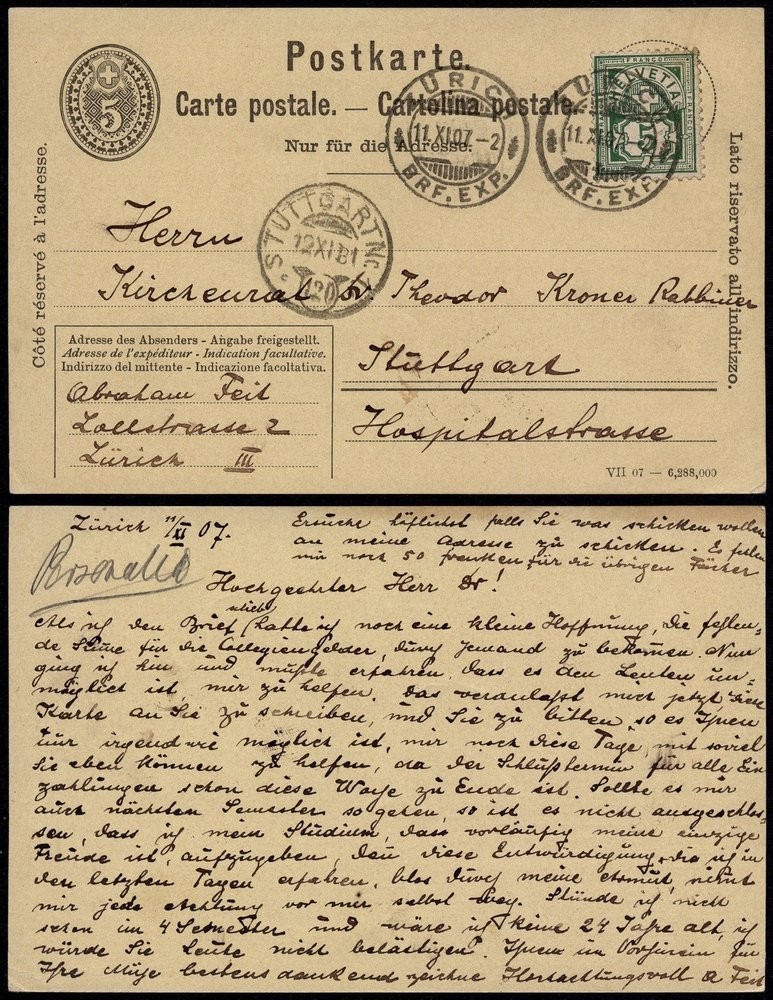 Postkarte.
Carte postale. — Cartolina postale.
Nur für die Adresse.
5
FRANCO
HELVETIA
ZÜRICH
11.XI.07.-2
BRF. EXP.
ZÜRICH
11.XI.07.
BRF. EXP.
STUTTGART No.
12 XI 81
120
Côté réservé à l'adresse.
Lato riservato all'indirizzo.
Herrn
Kirchenrat Dr. Theodor Kroner Rabbiner
Stuttgart
Hospitalstrasse
Adresse des Absenders - Angabe freigestellt.
Adresse de l'expéditeur - Indication facultative.
Indirizzo del mittente - Indicazione facoltativa.
Abraham Feit
Zollstrasse 2
Zürich III
VII 07 — 6,288,000
Zürich 11/XI 07.
Ersuche höflichst falls Sie was schicken wollen
an meine Adresse zu schicken. Es fehlen
mir noch 50 franken für die übrigen Fächer
Hochgeehrter Herr Dr!
Als ich den Brief schrieb hatte ich noch eine kleine Hoffnung, die fehlen-
de Sume für die Collegiengelder, durch jemand zu bekommen. Nun
ging ich hin und mußte erfahren, dass es den Leuten un-
möglich ist, mir zu helfen. Das veranlaßt mich jetzt, diese
Karte an Sie zu schreiben, und Sie zu bitten, so es Ihnen
nur irgend wie möglich ist, mir noch diese Tage, mit soviel
Sie eben können zu helfen, da der Schlußtermin für alle Ein
zahlungen schon diese Woche zu Ende ist. Sollte es mir
auch nächsten Semester so gehen, so ist es nicht ausgeschlos-
sen, dass ich mein Studium, dass vorläufig meine einzige
Freude ist, aufzugeben, den diese Entwürdigung, die ich in
den letzten Tagen erfahren, blos durch meine Armut, nimt
mir jede Achtung vor mir selbst weg. Stünde ich nicht
schon im 4 Semester und wäre ich keine 24 Jahre alt, ich
würde Sie Leute nicht belästigen. Ihnen im Vorhinein für
Ihre Mühe bestens dankend zeichne Hochachtungsvoll A Feit